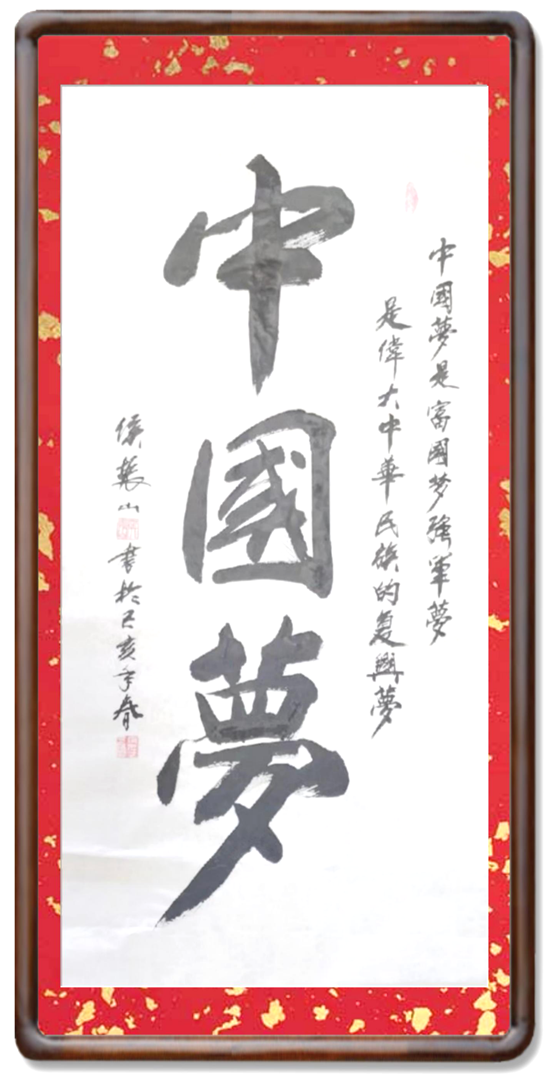 中國夢是富國梦強軍夢
是偉大中華民族的复興夢
中國夢
侯振山
書於己亥年春